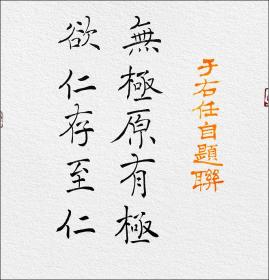 于右任自題聯
無極原有極
欲仁存至仁